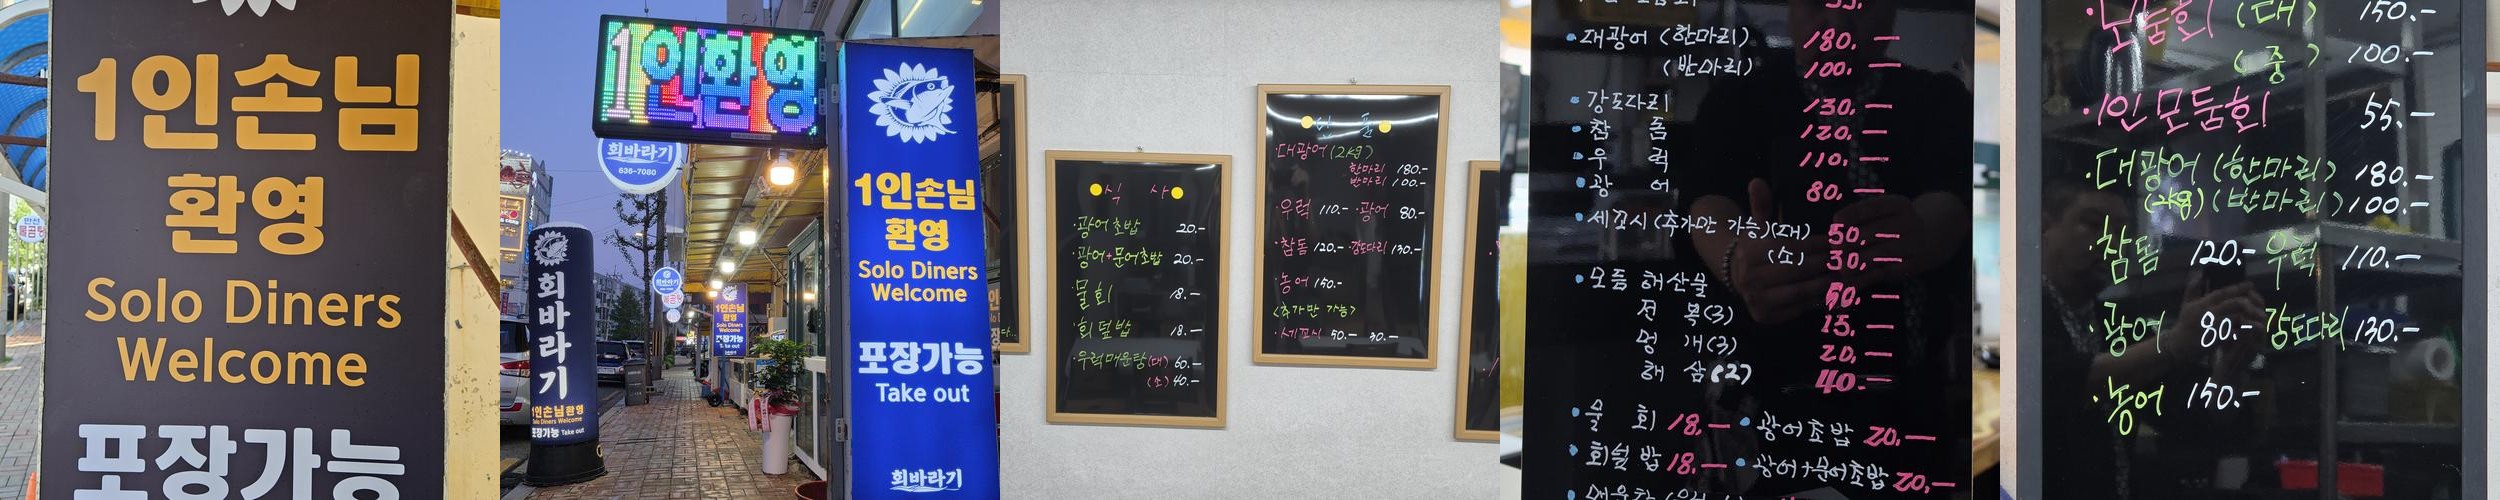 1인손님
환영
Solo Diners
Welcome
포장가능
만선
물곰탕
1인환영
회바라기
636-7080
1인손님
환영
Solo Diners
Welcome
포장가능
Take out
회바라기
회바라기
1인손님환영
Solo Diners Welcome
포장가능 Take out
1인손님
환영
Solo Diners
Welcome
포장가능
Take out
식 사
·광어초밥 20.-
·광어+문어초밥 20.-
·물회 18.-
·회덮밥 18.-
·우럭매운탕(대) 60.-
(소) 40.-
·대광어(2kg)
한마리 180.-
반마리 100.-
·우럭 110.- ·광어 80.-
·참돔 120.- ·강도다리 130.-
·농어 150.-
<추가만 가능>
·세꼬시 50.- 30.-
·대광어 (한마리) 180.—
(반마리) 100.—
·강도다리 130.—
·참 돔 120.—
·우 럭 110.—
·광 어 80.—
·세꼬시(추가만 가능)(대) 50.—
(소) 30.—
·모듬 해산물 50.—
전 복(3) 15.—
멍 게(3) 20.—
해 삼(2) 40.—
·물 회 18.— ·광어초밥 20.—
·회덮밥 18.— ·광어+문어초밥 20.—
·모둠회 (대) 150.-
(중) 100.-
·1인모둠회 55.-
·대광어 (한마리) 180.-
(2kg) (반마리) 100.-
·참돔 120.- 우럭 110.-
·광어 80.- 강도다리 130.-
·농어 150.-